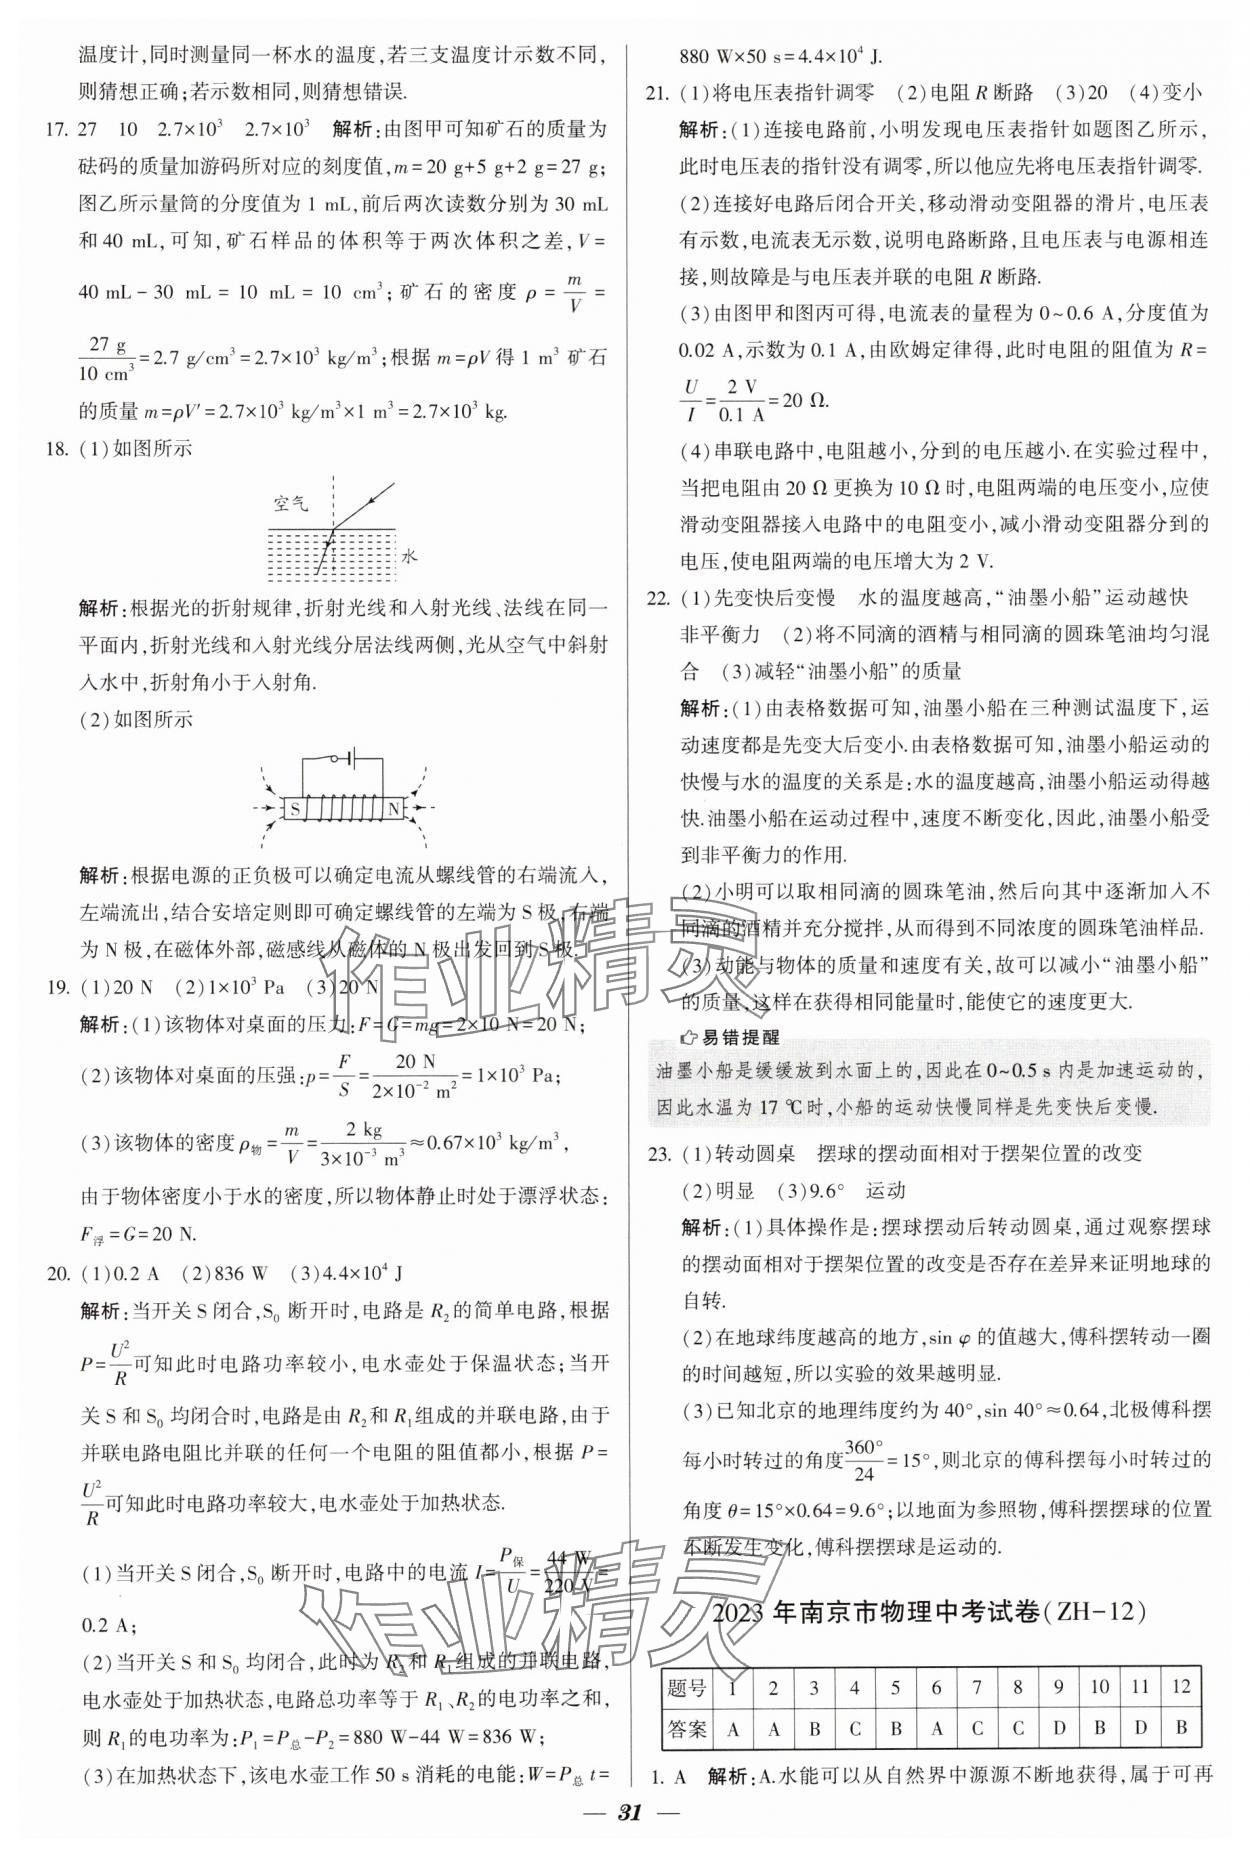 温度计,同时测量同一杯水的温度,若三支温度计示数不同,
则猜想正确;若示数相同,则猜想错误.
17. 27 10 2.7×10³ 2.7×10³ 解析:由图甲可知矿石的质量为
砝码的质量加游码所对应的刻度值,m=20 g+5 g+2 g=27 g;
图乙所示量筒的分度值为 1 mL,前后两次读数分别为 30 mL
和40 mL,可知,矿石样品的体积等于两次体积之差,V=
40 mL-30 mL=10 mL=10 cm³;矿石的密度 ρ=m/V=
27 g/10 cm³=2.7 g/cm³=2.7×10³ kg/m³;根据 m=ρV 得 1 m³ 矿石
的质量 m=ρV′=2.7×10³ kg/m³×1 m³=2.7×10³ kg.
18. (1)如图所示
空气
水
解析:根据光的折射规律,折射光线和入射光线、法线在同一
平面内,折射光线和入射光线分居法线两侧,光从空气中斜射
入水中,折射角小于入射角.
(2)如图所示
S N
解析:根据电源的正负极可以确定电流从螺线管的右端流入,
左端流出,结合安培定则即可确定螺线管的左端为 S 极,右端
为 N 极,在磁体外部,磁感线从磁体的 N 极出发回到 S 极.
19. (1)20 N (2)1×10³ Pa (3)20 N
解析:(1)该物体对桌面的压力:F=G=mg=2×10 N=20 N;
(2)该物体对桌面的压强:p=F/S=20 N/2×10⁻² m²=1×10³ Pa;
(3)该物体的密度 ρ物=m/V=2 kg/3×10⁻³ m³≈0.67×10³ kg/m³,
由于物体密度小于水的密度,所以物体静止时处于漂浮状态:
F浮=G=20 N.
20. (1)0.2 A (2)836 W (3)4.4×10⁴ J
解析:当开关 S 闭合,S₀ 断开时,电路是 R₂的简单电路,根据
P=U²/R可知此时电路功率较小,电水壶处于保温状态;当开
关 S 和 S₀ 均闭合时,电路是由 R₂和 R₁组成的并联电路,由于
并联电路电阻比并联的任何一个电阻的阻值都小,根据 P=
U²/R可知此时电路功率较大,电水壶处于加热状态.
(1)当开关 S 闭合,S₀ 断开时,电路中的电流 I=P保/U=44 W/220 V=
0.2 A;
(2)当开关 S 和 S₀ 均闭合,此时为 R₂和 R₁组成的并联电路,
电水壶处于加热状态,电路总功率等于 R₁、R₂的电功率之和,
则 R₁的电功率为:P₁=P总-P₂=880 W-44 W=836 W;
(3)在加热状态下,该电水壶工作 50 s 消耗的电能:W=P总 t=
880 W×50 s=4.4×10⁴ J.
21. (1)将电压表指针调零 (2)电阻 R 断路 (3)20 (4)变小
解析:(1)连接电路前,小明发现电压表指针如题图乙所示,
此时电压表的指针没有调零,所以他应先将电压表指针调零.
(2)连接好电路后闭合开关,移动滑动变阻器的滑片,电压表
有示数,电流表无示数,说明电路断路,且电压表与电源相连
接,则故障是与电压表并联的电阻 R 断路.
(3)由图甲和图丙可得,电流表的量程为 0~0.6 A,分度值为
0.02 A,示数为 0.1 A,由欧姆定律得,此时电阻的阻值为 R=
U/I=2 V/0.1 A=20 Ω.
(4)串联电路中,电阻越小,分到的电压越小.在实验过程中,
当把电阻由 20 Ω 更换为 10 Ω 时,电阻两端的电压变小,应使
滑动变阻器接入电路中的电阻变小,减小滑动变阻器分到的
电压,使电阻两端的电压增大为 2 V.
22. (1)先变快后变慢 水的温度越高,“油墨小船”运动越快
非平衡力 (2)将不同滴的酒精与相同滴的圆珠笔油均匀混
合 (3)减轻“油墨小船”的质量
解析:(1)由表格数据可知,油墨小船在三种测试温度下,运
动速度都是先变大后变小.由表格数据可知,油墨小船运动的
快慢与水的温度的关系是:水的温度越高,油墨小船运动得越
快.油墨小船在运动过程中,速度不断变化,因此,油墨小船受
到非平衡力的作用.
(2)小明可以取相同滴的圆珠笔油,然后向其中逐渐加入不
同滴的酒精并充分搅拌,从而得到不同浓度的圆珠笔油样品.
(3)动能与物体的质量和速度有关,故可以减小“油墨小船”
的质量,这样在获得相同能量时,能使它的速度更大.
易错提醒
油墨小船是缓缓放到水面上的,因此在 0~0.5 s 内是加速运动的,
因此水温为 17 ℃时,小船的运动快慢同样是先变快后变慢.
23. (1)转动圆桌 摆球的摆动面相对于摆架位置的改变
(2)明显 (3)9.6° 运动
解析:(1)具体操作是:摆球摆动后转动圆桌,通过观察摆球
的摆动面相对于摆架位置的改变是否存在差异来证明地球的
自转.
(2)在地球纬度越高的地方,sin φ 的值越大,傅科摆转动一圈
的时间越短,所以实验的效果越明显.
(3)已知北京的地理纬度约为 40°,sin 40°≈0.64,北极傅科摆
每小时转过的角度360°/24=15°,则北京的傅科摆每小时转过的
角度 θ=15°×0.64=9.6°;以地面为参照物,傅科摆摆球的位置
不断发生变化,傅科摆摆球是运动的.
2023 年南京市物理中考试卷(ZH-12)
题号 1 2 3 4 5 6 7 8 9 10 11 12
答案 A A B C B A C C D B D B
1. A 解析:A.水能可以从自然界中源源不断地获得,属于可再
— 31 —
作业精灵
作业精灵